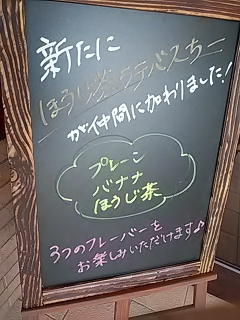 新たに
ほうじ茶ラテバスちー
が仲間に加わりました!
プレーン
バナナ
ほうじ茶
3つのフレーバーを
お楽しみいただけます♪